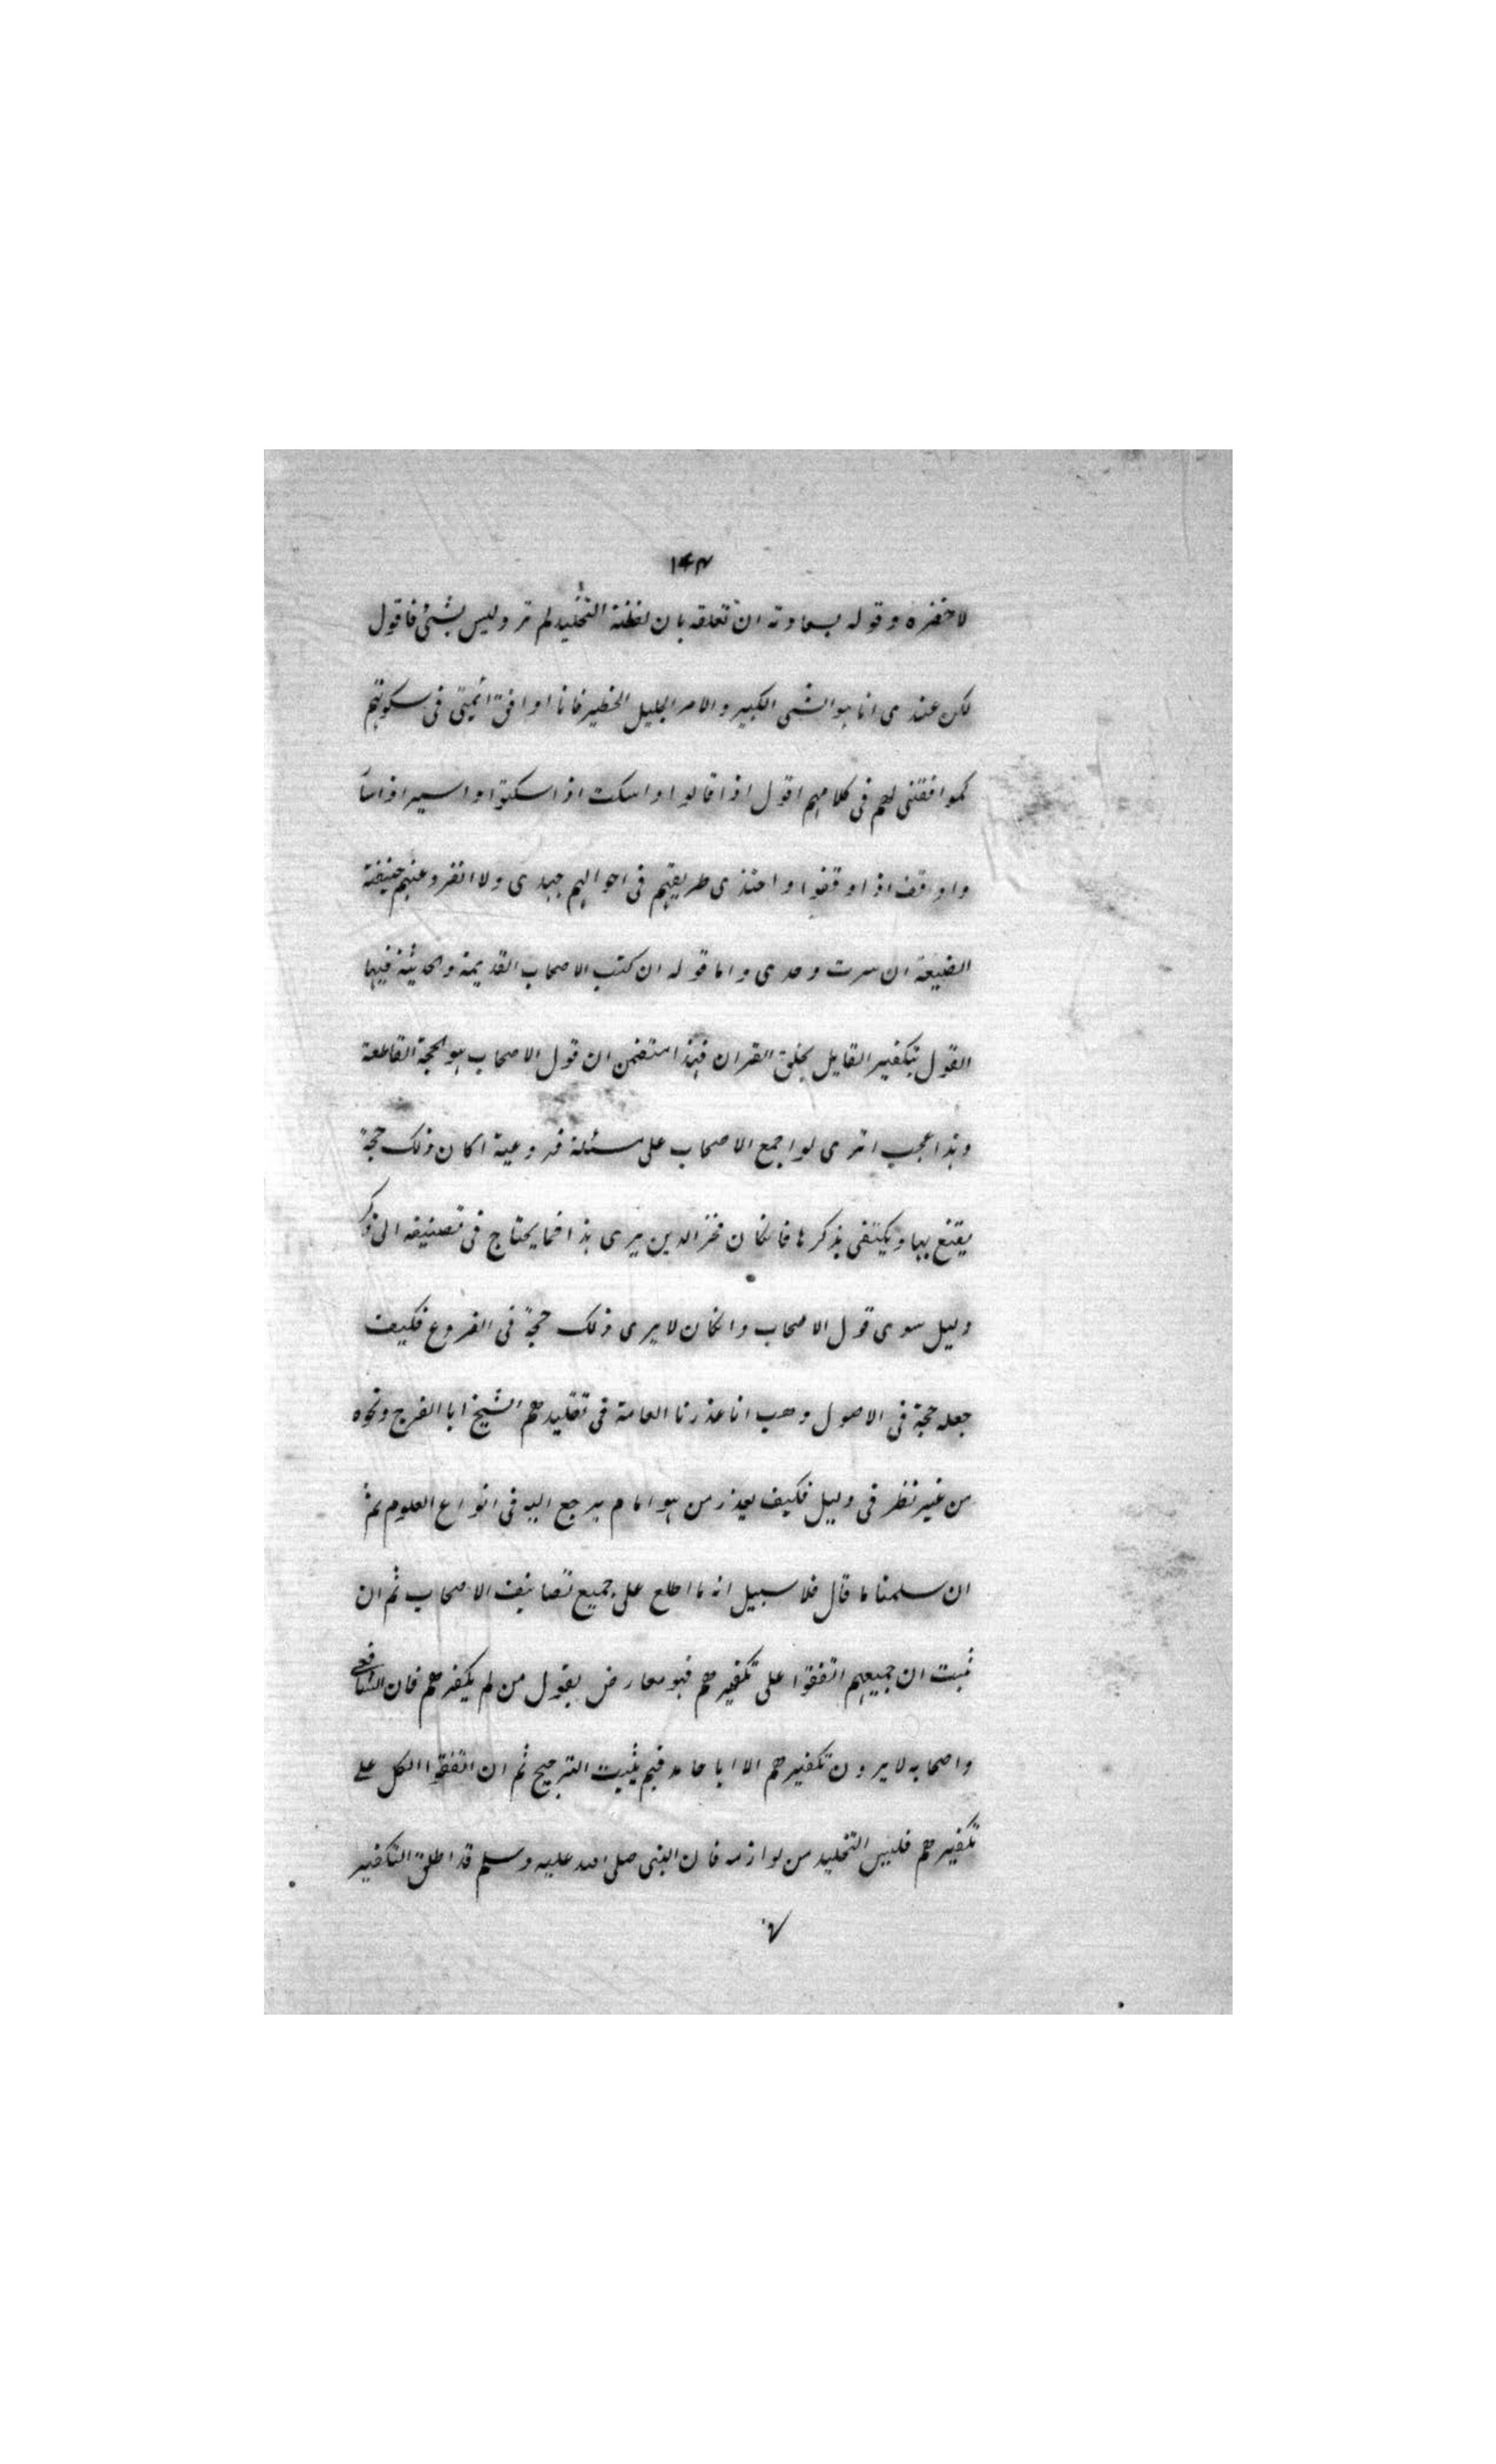 ١٤٣
لاخفره وقوله بسعادته ان تعلقه بان لفظة التخليد لم ترد وليس بشئ فاقول
لكن عندى انا هو الشى الكبير والامر الجليل الخطير فانا اوافق ائمتى فى سكوتهم
كموافقتى لهم فى كلامهم اقول اذا قالوا واسكت اذا سكتوا واسير اذا سا
واوقف اذا وقفوا واحتذى طريقهم فى احوالهم جهدى ولا انفرد عنهم خيفة
الضيعة ان سرت وحدى واما قوله ان كتب الاصحاب القديمة والحديثة فيها
القول بتكفير القايل بخلق القران فهذا متضمن ان قول الاصحاب هو الحجة القاطعة
وهذا عجب اترى لو اجمع الاصحاب على مسئلة فروعية اكان ذلك حجة
يقتنع بها ويكتفى بذكرها فانكان فخر الدين يرى هذا فما يحتاج فى تصنيفه الى ذكر
دليل سوى قول الاصحاب وانكان لا يرى ذلك حجة فى الفروع فكيف
جعله حجة فى الاصول وهب انا عذرنا العامة فى تقليدهم الشيخ ابا الفرج ونحوه
من غير نظر فى دليل فكيف يعذر من هو امام يرجع اليه فى انواع العلوم ثم
ان سلمنا ما قال فلا سبيل انه ما اطلع على جميع تصانيف الاصحاب ثم ان
ثبت ان جميعهم اتفقوا على تكفيرهم فهو معارض بقول من لم يكفرهم فان الشافعى
واصحابه لا يرون تكفيرهم الا ابا حامد فبم يثبت الترجيح ثم ان اتفقوا الكل على
تكفيرهم فليس التخليد من لوازمه فان النبى صلى الله عليه وسلم قد اطلق التكفير